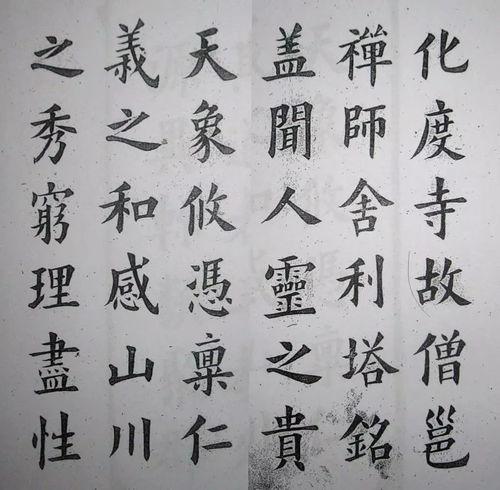 化度寺故僧邕
禪師舍利塔銘
盖聞人靈之貴
天象攸憑禀仁
義之和感山川
之秀窮理盡性